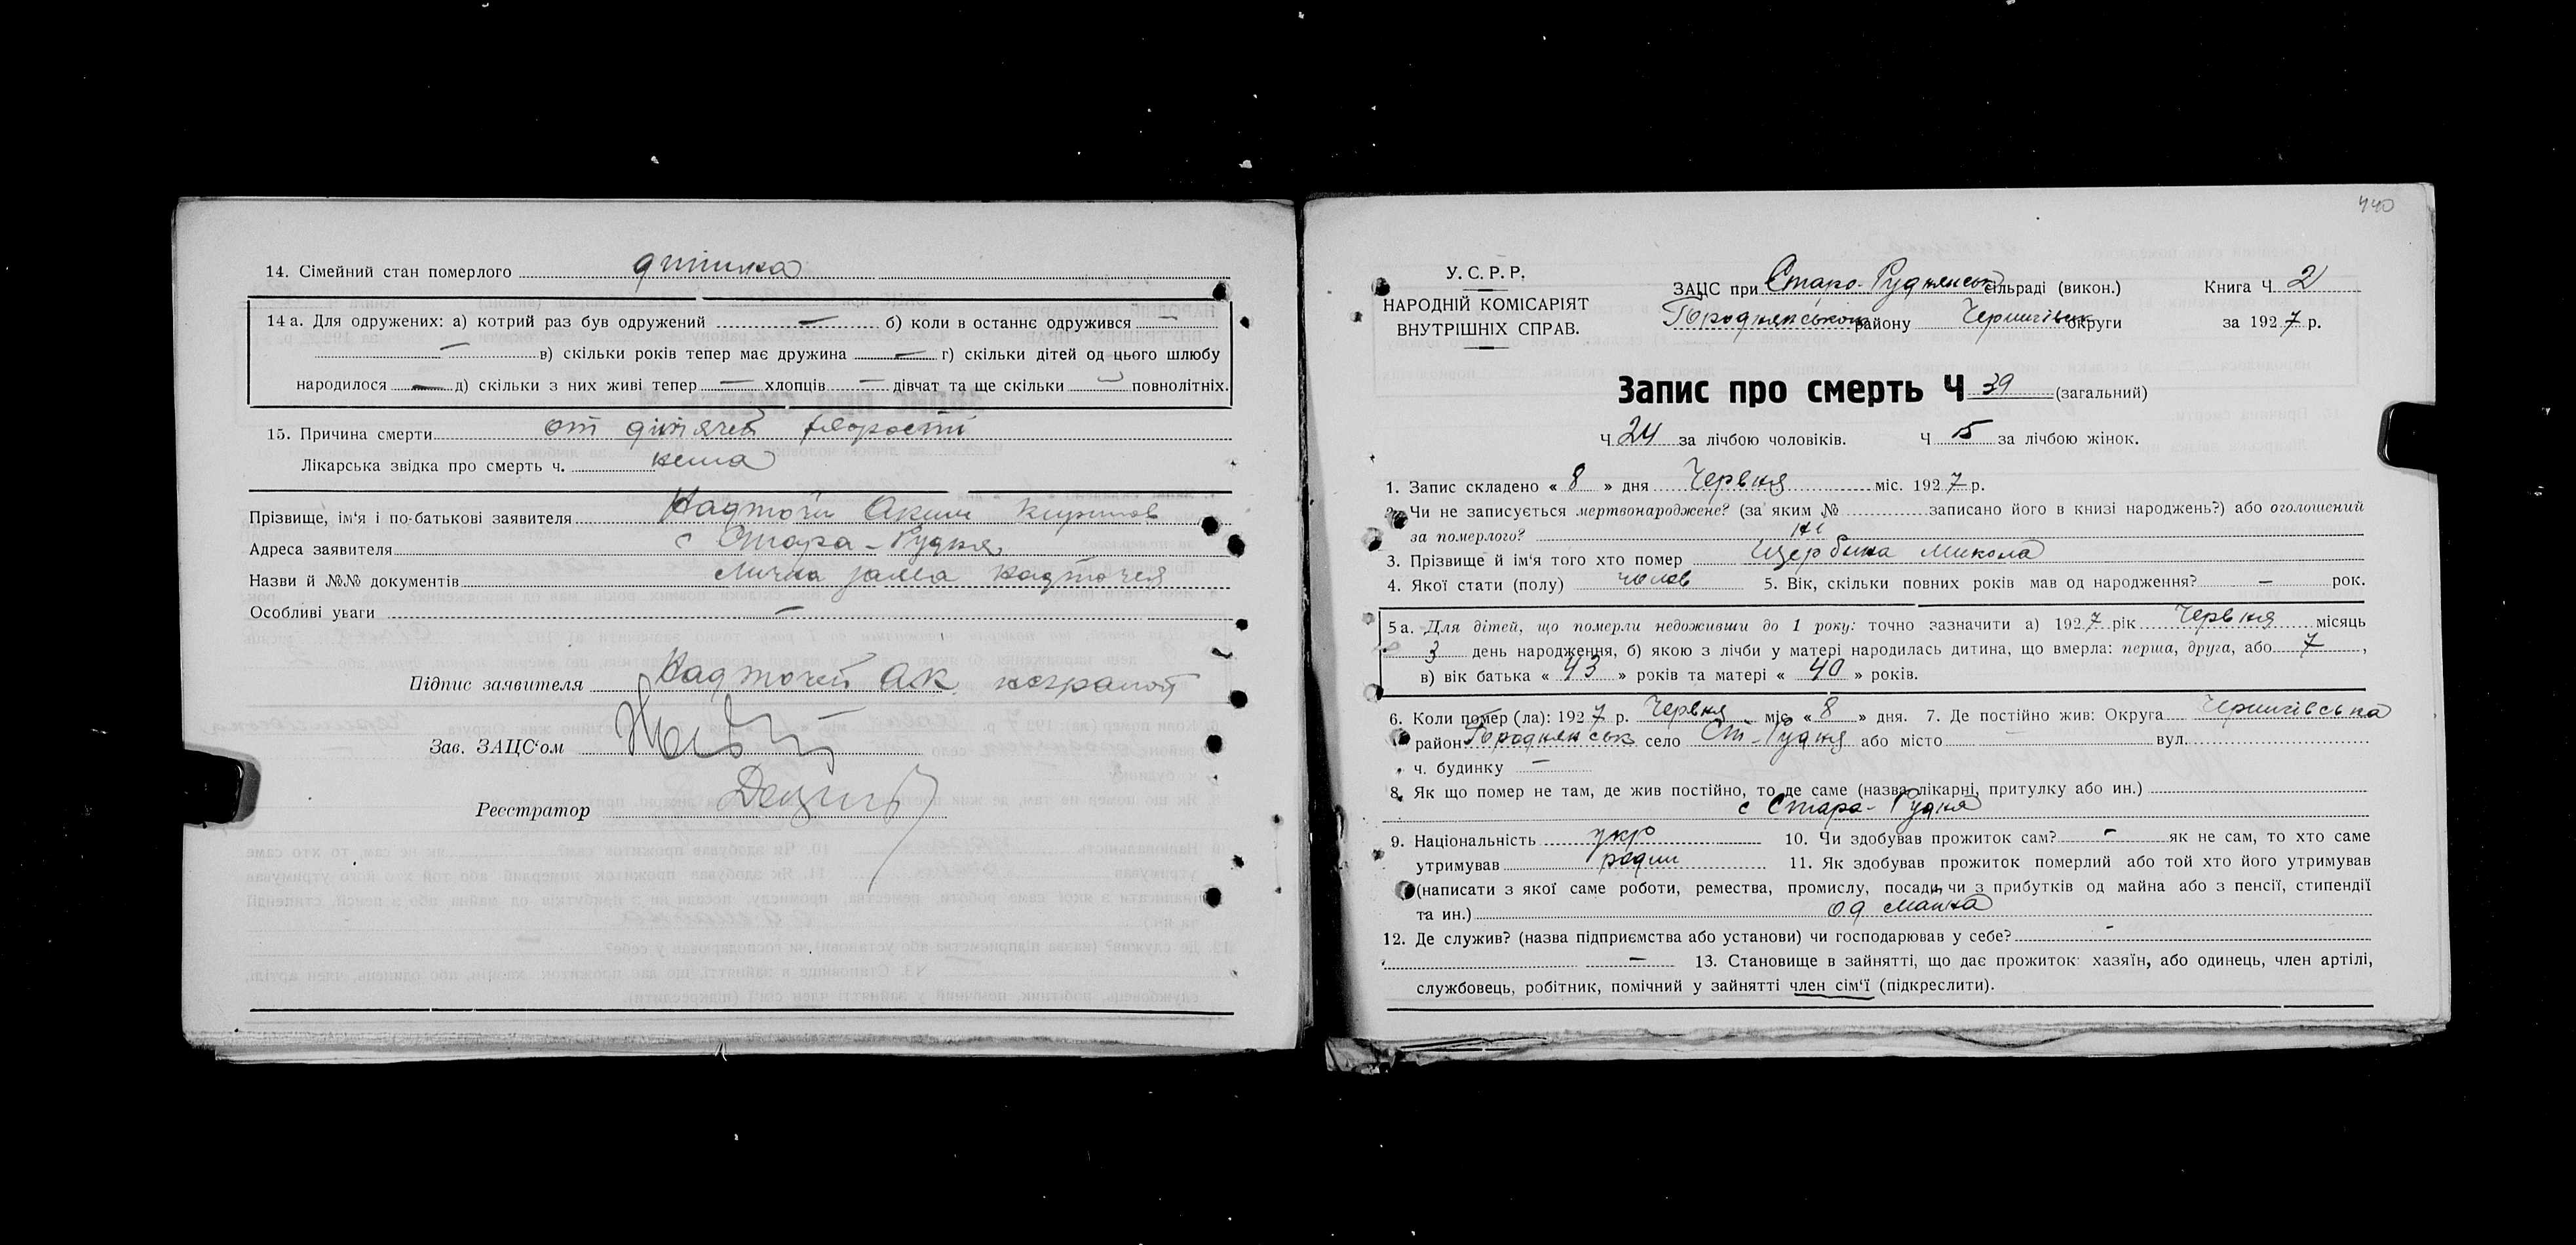 14. Сімейний стан померлого дитина
14 а. Для одружених: а) котрий раз був одружений — б) коли в останнє одружився —
— в) скільки років тепер має дружина — г) скільки дітей од цього шлюбу
народилося — д) скільки з них живі тепер — хлопців — дівчат та ще скільки — повнолітніх.
15. Причина смерти от дитячей
Лікарська звідка про смерть ч. нема
Прізвище, ім'я і по-батькові заявителя Надточій Аким
Адреса заявителя с Стара-Рудня
Назви й №№ документів Лична заява Надточея
Особливі уваги —
Підпис заявителя Надточей Ак неграмот
Зав. ЗАЦС'ом
Реєстратор
440
У. С. Р. Р.
НАРОДНІЙ КОМІСАРІЯТ
ВНУТРІШНІХ СПРАВ.
ЗАЦС при Старо-Руднянськ сільраді (викон.) Книга Ч. 2
Городнянськом району Чернигівськ округи за 1927 р.
Запис про смерть Ч 39 (загальний)
Ч 24 за лічбою чоловіків. Ч 15 за лічбою жінок.
1. Запис складено « 8 » дня Червня міс. 1927 р.
2. Чи не записується мертвонароджене? (за яким № записано його в книзі народжень?) або оголошений
за померлого? Ні
3. Прізвище й ім'я того хто помер Щербина Микола
4. Якої стати (полу) чолов 5. Вік, скільки повних років мав од народження? — рок.
5 а. Для дітей, що померли недоживши до 1 року: точно зазначити а) 1927 рік Червня місяць
3 день народження, б) якою з лічби у матері народилась дитина, що вмерла: перша, друга, або 7,
в) вік батька « 43 » років та матері « 40 » років.
6. Коли помер (ла): 1927 р. Червня міс. « 8 » дня. 7. Де постійно жив: Округа Чернигівська
район Городнянськ село Ст-Рудня або місто вул.
ч. будинку —
8. Як що помер не там, де жив постійно, то де саме (назва лікарні, притулку або ин.)
с Стара-Рудня
9. Національність укр 10. Чи здобував прожиток сам? — як не сам, то хто саме
утримував родин 11. Як здобував прожиток померлий або той хто його утримував
(написати з якої саме роботи, ремества, промислу, посади, чи з прибутків од майна або з пенсії, стипендії
та ин.) од маина
12. Де служив? (назва підприємства або установи) чи господарював у себе? -
— 13. Становище в зайнятті, що дає прожиток: хазяїн, або одинець, член артілі,
службовець, робітник, помічний у зайнятті член сім'ї (підкреслити).